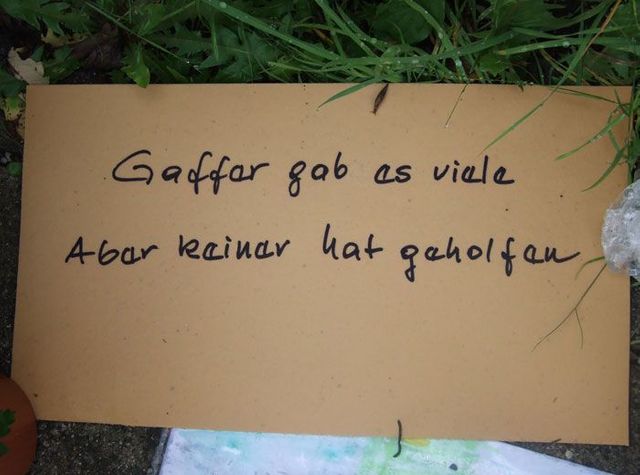 Gaffer gab es viele
Aber keiner hat geholfen